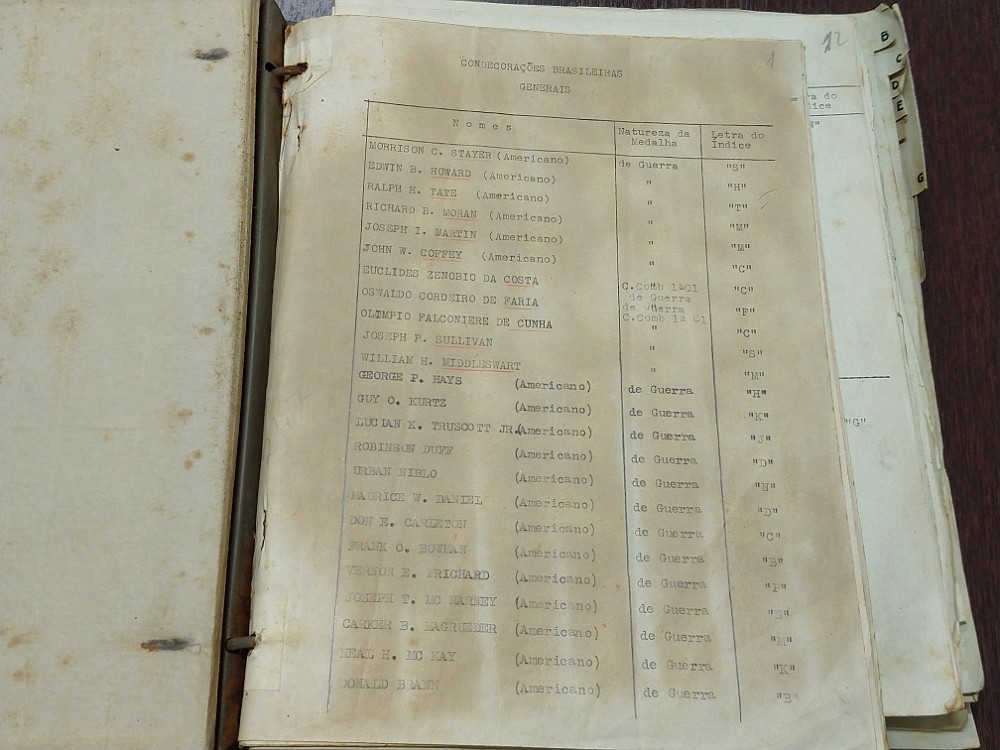 1
12
CONDECORAÇÕES BRASILEIRAS
GENERAIS
Nomes Natureza da Medalha Letra do Índice
MORRISON C. STAYER (Americano) de Guerra "S"
EDWIN B. HOWARD (Americano) " "H"
RALPH H. TATE (Americano) " "T"
RICHARD B. MORAN (Americano) " "M"
JOSEPH I. MARTIN (Americano) " "M"
JOHN W. COFFEY (Americano) " "C"
EUCLIDES ZENOBIO DA COSTA C.Comb 1ªCl de Guerra "C"
OSWALDO CORDEIRO DE FARIA de Guerra C.Comb 1ª Cl "F"
OLIMPIO FALCONIERE DE CUNHA " "C"
JOSEPH P. SULLIVAN " "S"
WILLIAM H. MIDDLESWART " "M"
GEORGE P. HAYS (Americano) de Guerra "H"
GUY O. KURTZ (Americano) de Guerra "K"
LUCIAN K. TRUSCOTT JR. (Americano) de Guerra "J"
ROBINSON DUFF (Americano) de Guerra "D"
URBAN NIBLO (Americano) de Guerra "N"
MAURICE W. DANIEL (Americano) de Guerra "D"
DON E. CARLETON (Americano) de Guerra "C"
FRANK O. BOWMAN (Americano) de Guerra "B"
VERNON E. PRICHARD (Americano) de Guerra "P"
JOSEPH T. MC NARNEY (Americano) de Guerra
CARKER B. MAGRUEDER (Americano) de Guerra "M"
NEAL H. MC KAY (Americano) de Guerra "K"
DONALD BRANN (Americano) de Guerra "B"
"G"
B
C
D
E
G